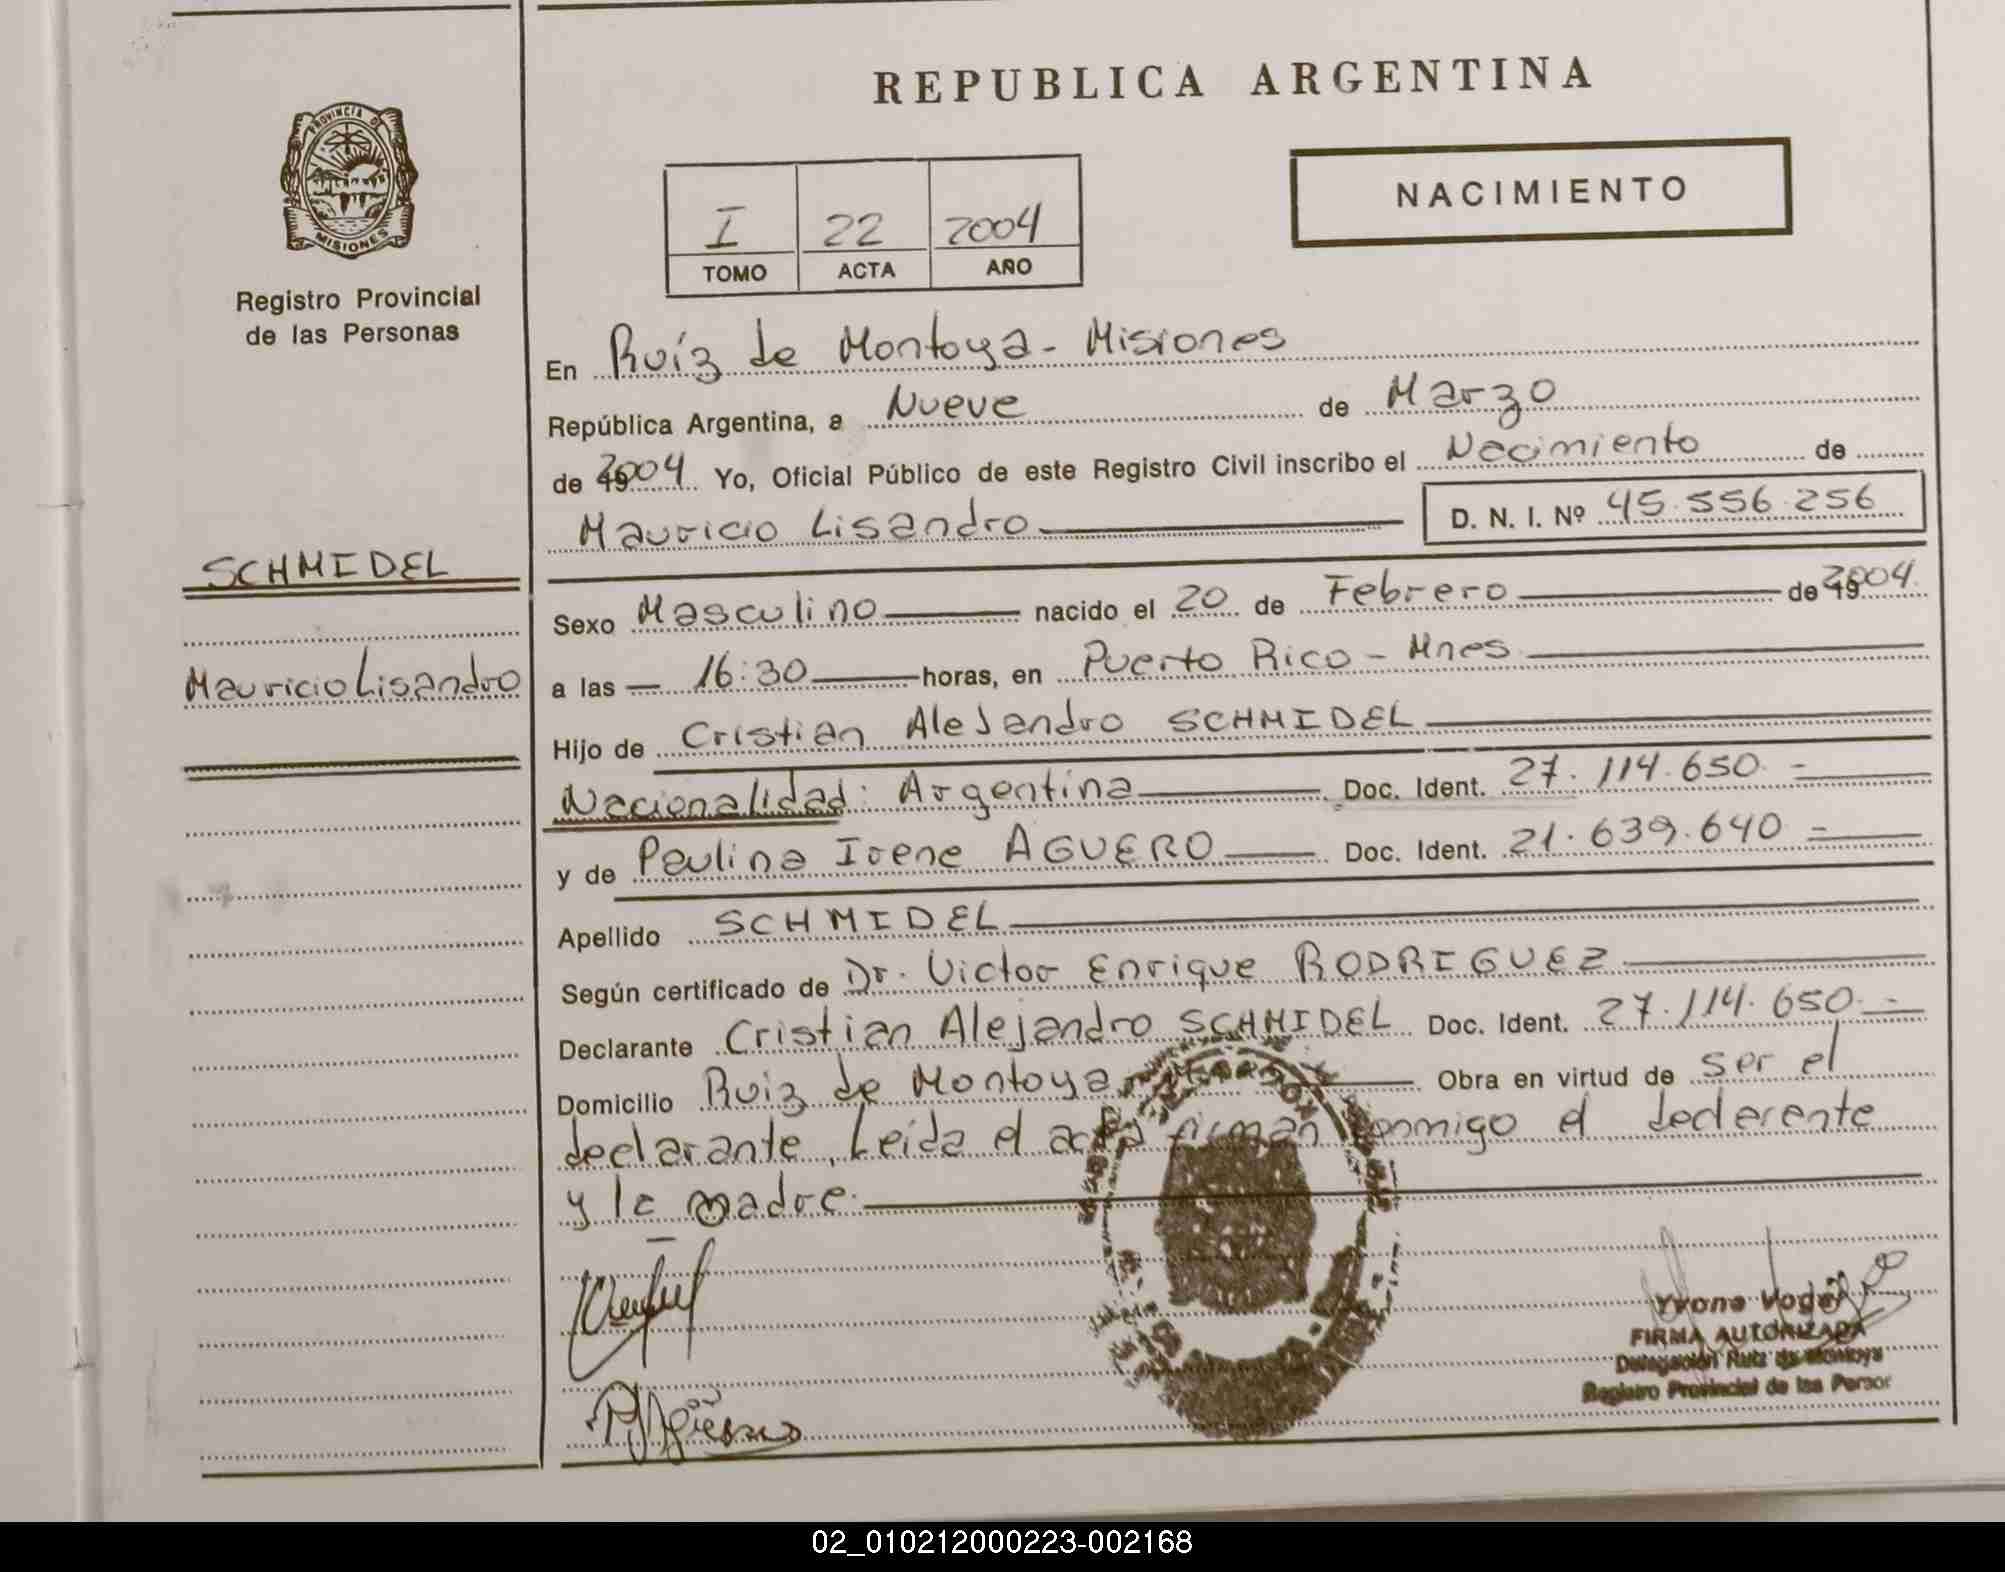 REPUBLICA ARGENTINA
PROVINCIA DE
MISIONES
Registro Provincial
de las Personas
NACIMIENTO
I 22 2004
TOMO ACTA AÑO
En Ruíz de Montoya - Misiones
República Argentina, a Nueve de Marzo
de 2004 Yo, Oficial Público de este Registro Civil inscribo el Nacimiento de
Mauricio Lisandro D. N. I. Nº 45.556.256
SCHMIDEL
Mauricio Lisandro
Sexo Masculino nacido el 20 de Febrero de 2004
a las 16:30 horas, en Puerto Rico - Mnes
Hijo de Cristian Alejandro SCHMIDEL
Nacionalidad: Argentina Doc. Ident. 27.114.650.-
y de Paulina Irene AGUERO Doc. Ident. 21.639.640.-
Apellido SCHMIDEL
Según certificado de Dr. Victor Enrique RODRIGUEZ
Declarante Cristian Alejandro SCHMIDEL Doc. Ident. 27.114.650.-
Domicilio Ruiz de Montoya Obra en virtud de ser el
declarante, Leida el acta firman conmigo el declarante
y la madre.
Yvone Vogel
FIRMA AUTORIZADA
Delegación Ruiz de Montoya
Registro Provincial de las Person
02_010212000223-002168